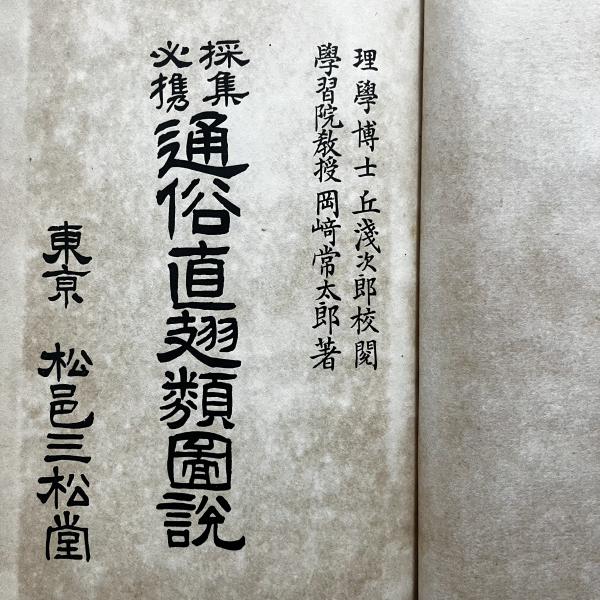 理學博士丘淺次郎校閱
學習院教授岡﨑常太郎著
採集
必携
通俗直翅類圖說
東京 松邑三松堂